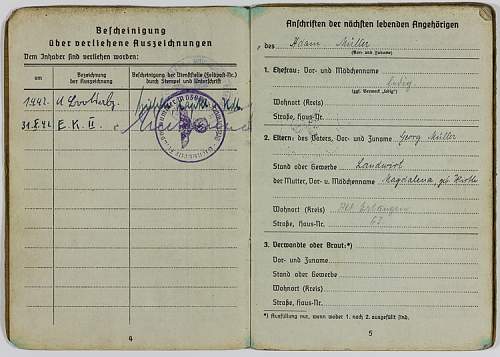 Bescheinigung
über verliehene Auszeichnungen
Dem Inhaber sind verliehen worden:
am
Bezeichnung der Auszeichnung
Bescheinigung der Dienststelle (Feldpost-Nr.) durch Stempel und Unterschrift
1942
E.K. II.
4
Anschriften der nächsten lebenden Angehörigen
des Adam Müller
(Vor- und Zuname)
1. Ehefrau: Vor- und Mädchenname
ledig
(ggf. Vermerk „ledig")
Wohnort (Kreis)
Straße, Haus-Nr.
2. Eltern: des Vaters, Vor- und Zuname Georg Müller
Stand oder Gewerbe Landwirt
der Mutter, Vor- u. Mädchenname Magdalena, geb.
Wohnort (Kreis) Erlangen
Straße, Haus-Nr.
3. Verwandte oder Braut:*)
Vor- und Zuname
Stand oder Gewerbe
Wohnort (Kreis)
Straße, Haus-Nr.
*) Ausfüllung nur, wenn weder 1. noch 2. ausgefüllt sind.
5